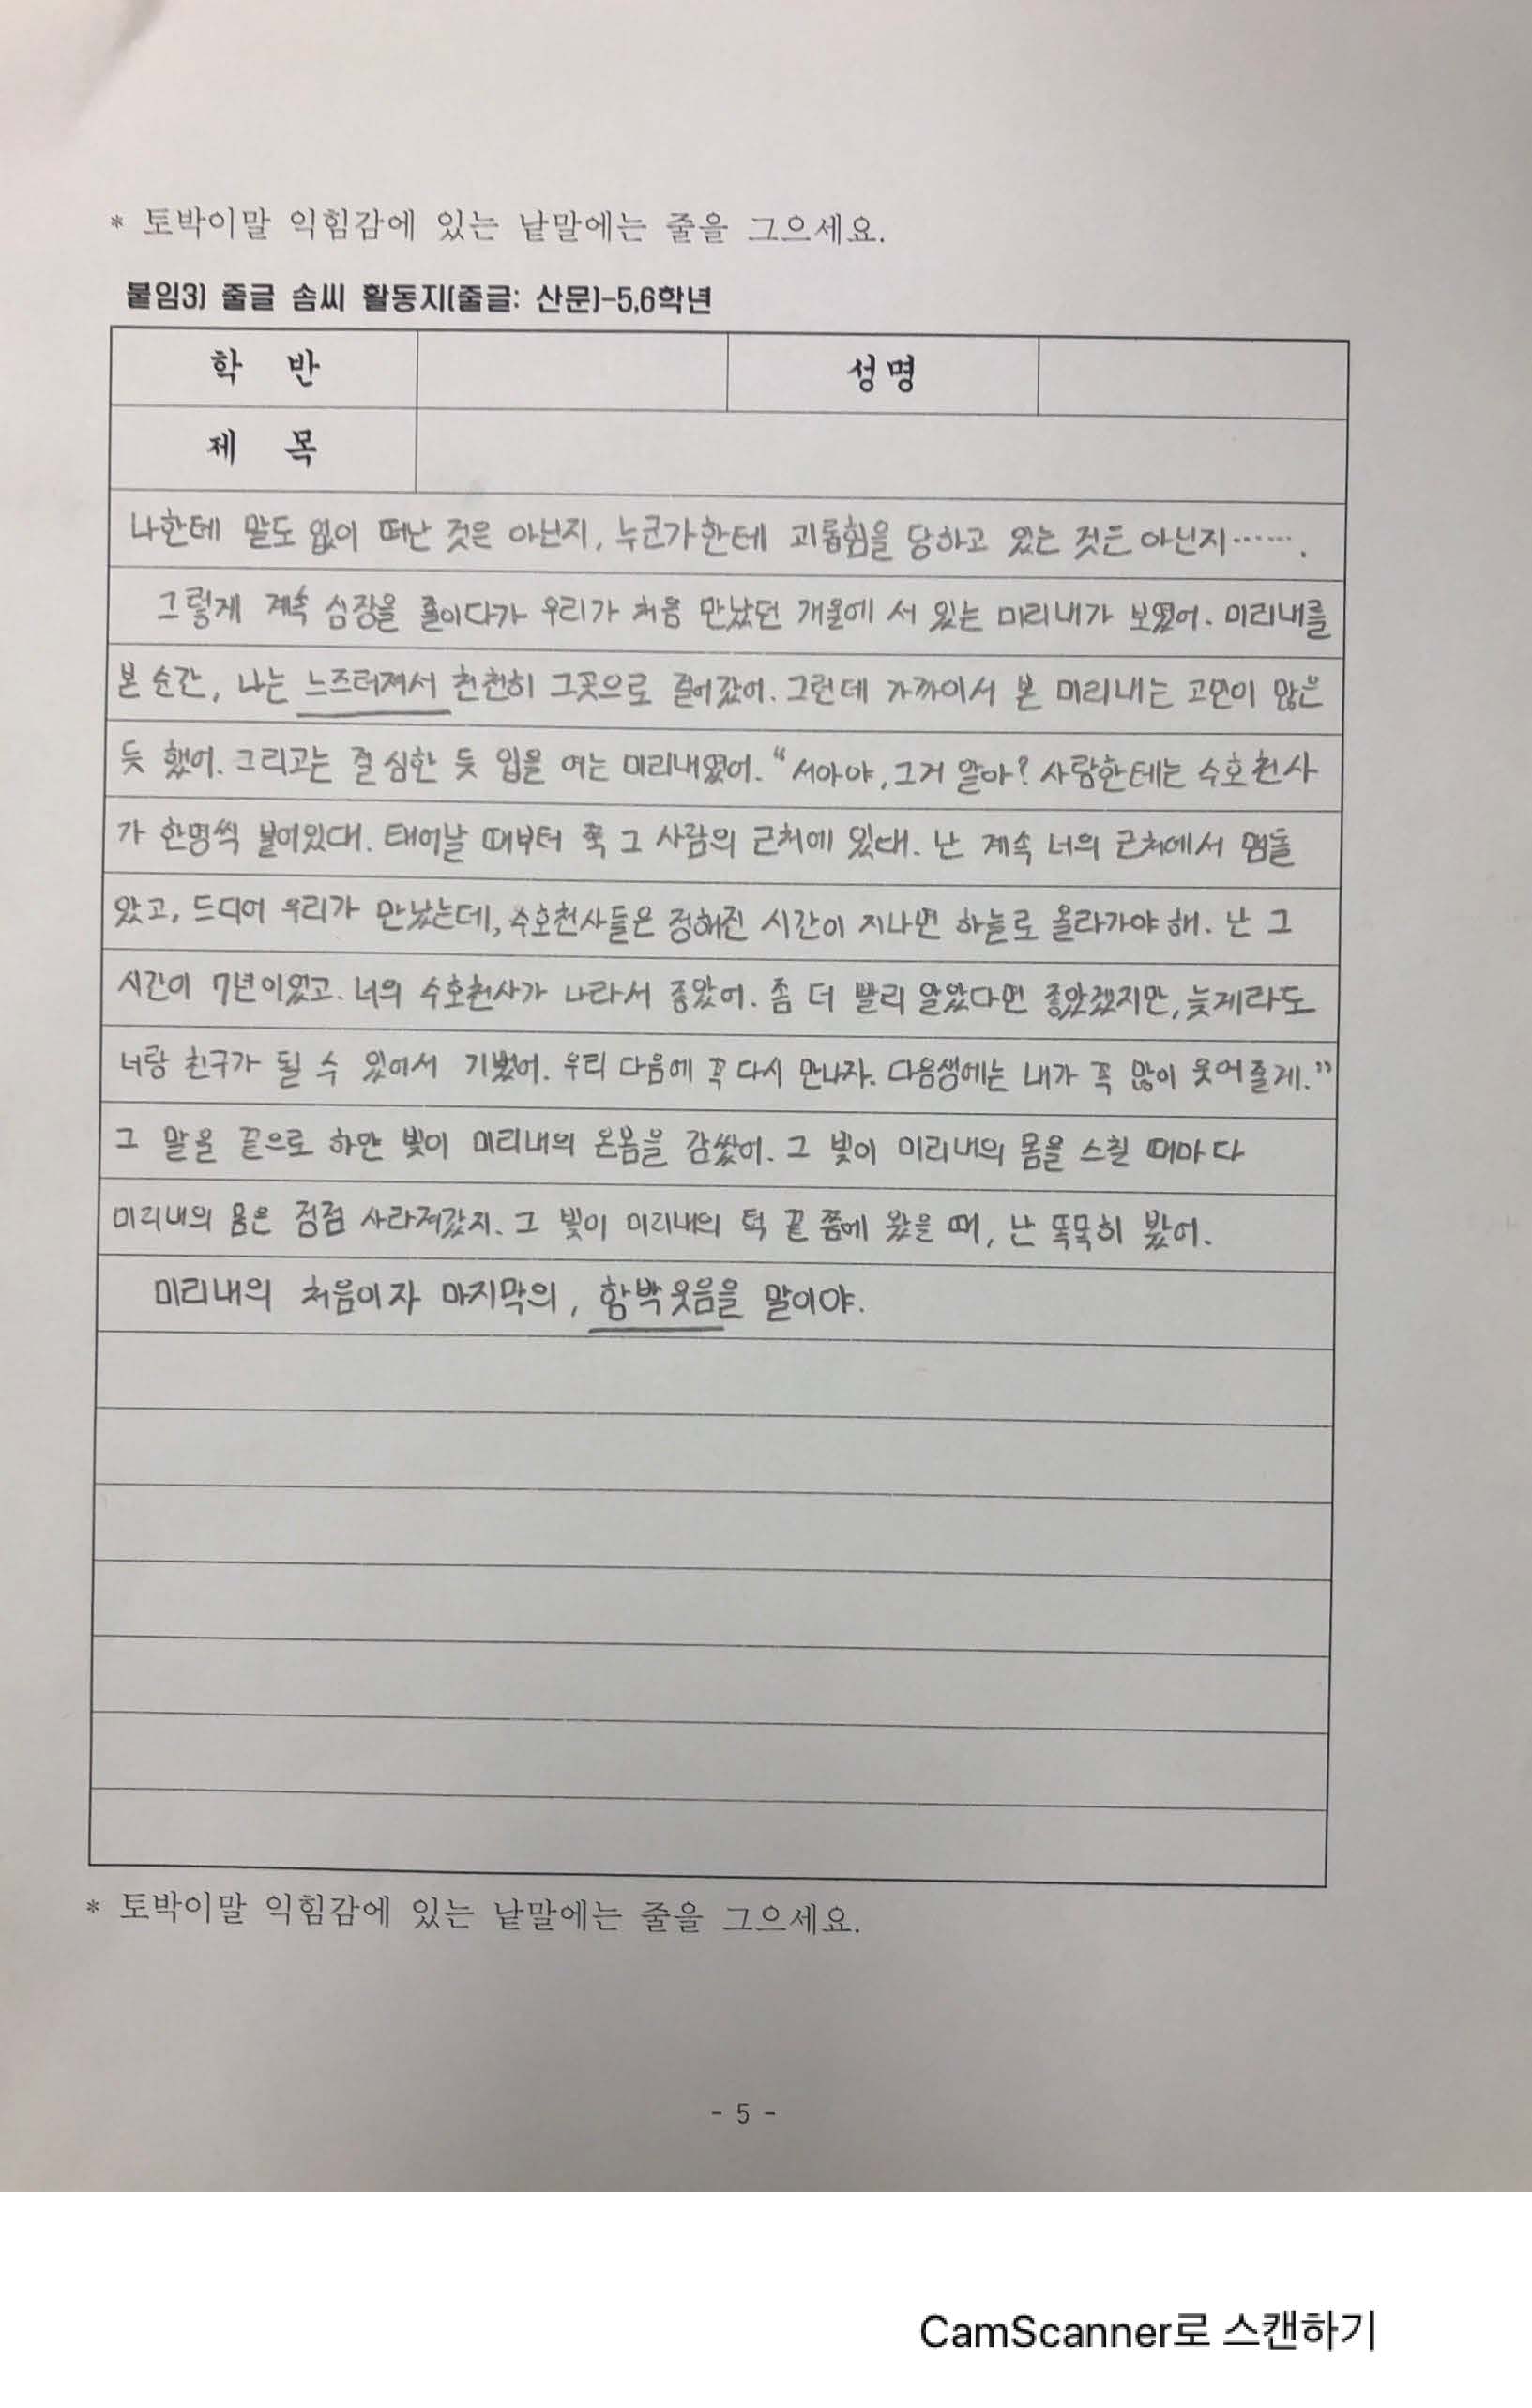 * 토박이말 익힘감에 있는 낱말에는 줄을 그으세요.
붙임3) 줄글 솜씨 활동지(줄글: 산문)-5,6학년
학 반 성명
제 목
나한테 말도 없이 떠난 것은 아닌지, 누군가한테 괴롭힘을 당하고 있는 것은 아닌지…….
그렇게 계속 심장을 졸이다가 우리가 처음 만났던 개울에 서 있는 미리내가 보였어. 미리내를
본 순간, 나는 느즈러져서 천천히 그곳으로 걸어갔어. 그런데 가까이서 본 미리내는 고민이 많은
듯 했어. 그리고는 결심한 듯 입을 여는 미리내였어. “서아야, 그거 알아? 사람한테는 수호천사
가 한명씩 붙어있대. 태어날 때부터 쭉 그 사람의 근처에 있대. 난 계속 너의 근처에서 맴돌
았고, 드디어 우리가 만났는데, 수호천사들은 정해진 시간이 지나면 하늘로 올라가야 해. 난 그
시간이 7년이었고. 너의 수호천사가 나라서 좋았어. 좀 더 빨리 알았다면 좋았겠지만, 늦게라도
너랑 친구가 될 수 있어서 기뻤어. 우리 다음에 꼭 다시 만나자. 다음생에는 내가 꼭 많이 웃어줄게.”
그 말을 끝으로 하얀 빛이 미리내의 온몸을 감쌌어. 그 빛이 미리내의 몸을 스칠 때마다
미리내의 몸은 점점 사라져갔지. 그 빛이 미리내의 턱 끝 쯤에 왔을 때, 난 똑똑히 봤어.
미리내의 처음이자 마지막의, 함박웃음을 말이야.
* 토박이말 익힘감에 있는 낱말에는 줄을 그으세요.
- 5 -
CamScanner로 스캔하기